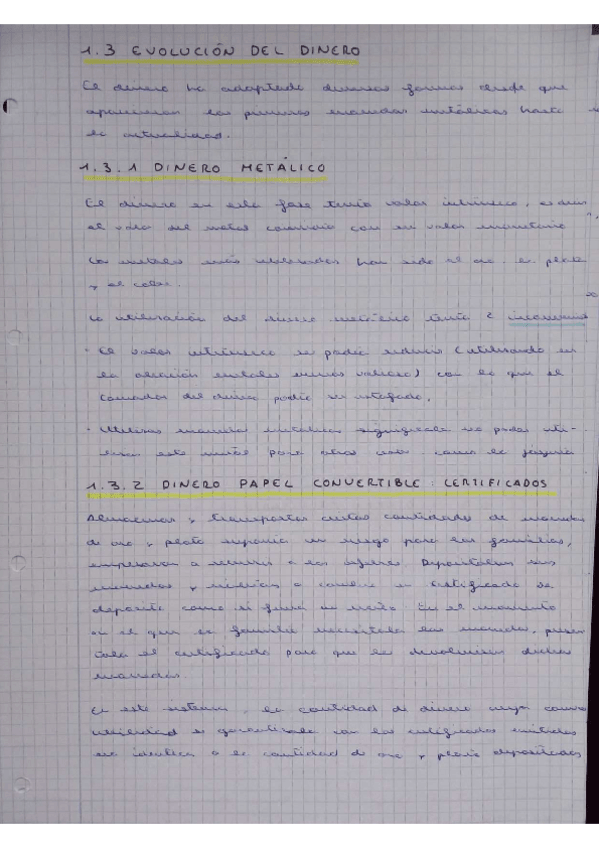 1.3 EVOLUCIÓN DEL DINERO
El dinero ha adaptado diversas formas desde que
aparecieron las primeras monedas metálicas hasta
la actualidad.
1.3.1 DINERO METÁLICO
El dinero en esta fase tenía valor intrínseco, es decir
el valor del metal coincidía con su valor monetario
Los metales más utilizados han sido el oro, la plata
y el cobre.
La utilización del dinero metálico tenía 2
· El valor intrínseco se podía reducir (utilizando en
la aleación metales menos valiosos) con lo que el
tomador del dinero podía ser estafado.
· Utilizar monedas metálicas significaba no poder uti-
lizar este metal para otros usos como la joyería
1.3.2 DINERO PAPEL CONVERTIBLE: CERTIFICADOS
Almacenar y transportar ciertas cantidades de monedas
de oro y plata suponía un riesgo para las familias,
empezaron a recurrir a los orfebres. Depositaban sus
monedas y recibían a cambio un certificado de
depósito como si fuera un recibo. En el momento
en el que la familia necesitaba sus monedas, presen
taba el certificado para que le devolviesen dichas
monedas.
En este sistema, la cantidad de dinero
se garantizaba con los certificados emitidos
era idéntica a la cantidad de oro y plata depositados